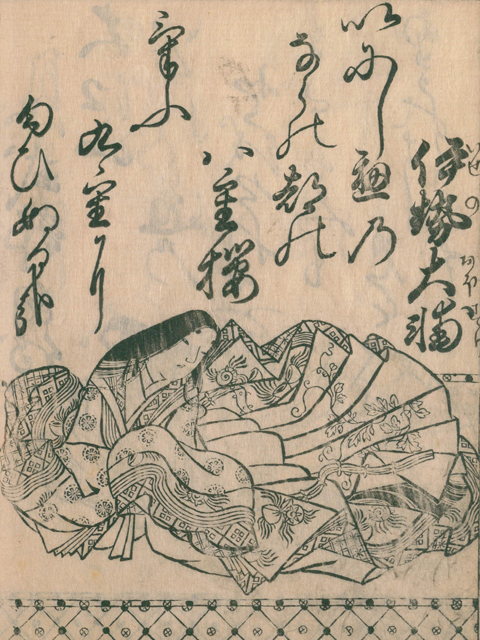 伊勢大輔
いせの
いにし遍乃
ならの都の
八重桜
けふ
九重に
匂ひぬる哉